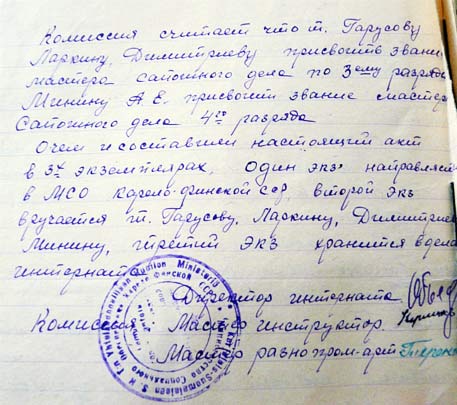 Комиссия считает что т. Гарусову
Ларкину, Димитриеву присвоить звани
мастера сапожного дела по 3ему разряд
Минину А.Е. присвоит звание мастер
Сапожного дела 4го разряда
Очем и составлен настоящий акт
в 3х экземплярах. Один экз направляет
в МСО Карело-финской ССР, второй экз
вручается т. Гарусову, Ларкину, Димитрие
Минину, третий экз хранится в дела
интернат
Директор интерната
Комиссия Мастер инструктор
Мастер разнопром-арт